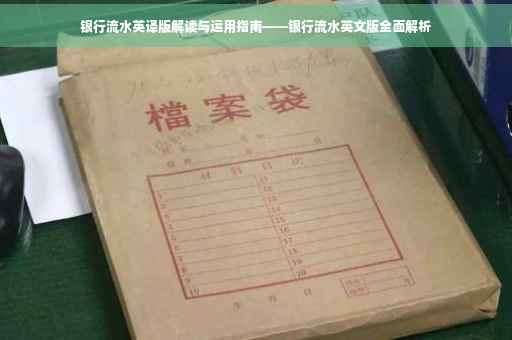 银行流水英译版解读与运用指南——银行流水英文版全面解析
檔案袋
材料目次
1 11
2 12
3 13
4 14
5 15
6 16
7 17
8 18
9 19
10 20
年 月 日